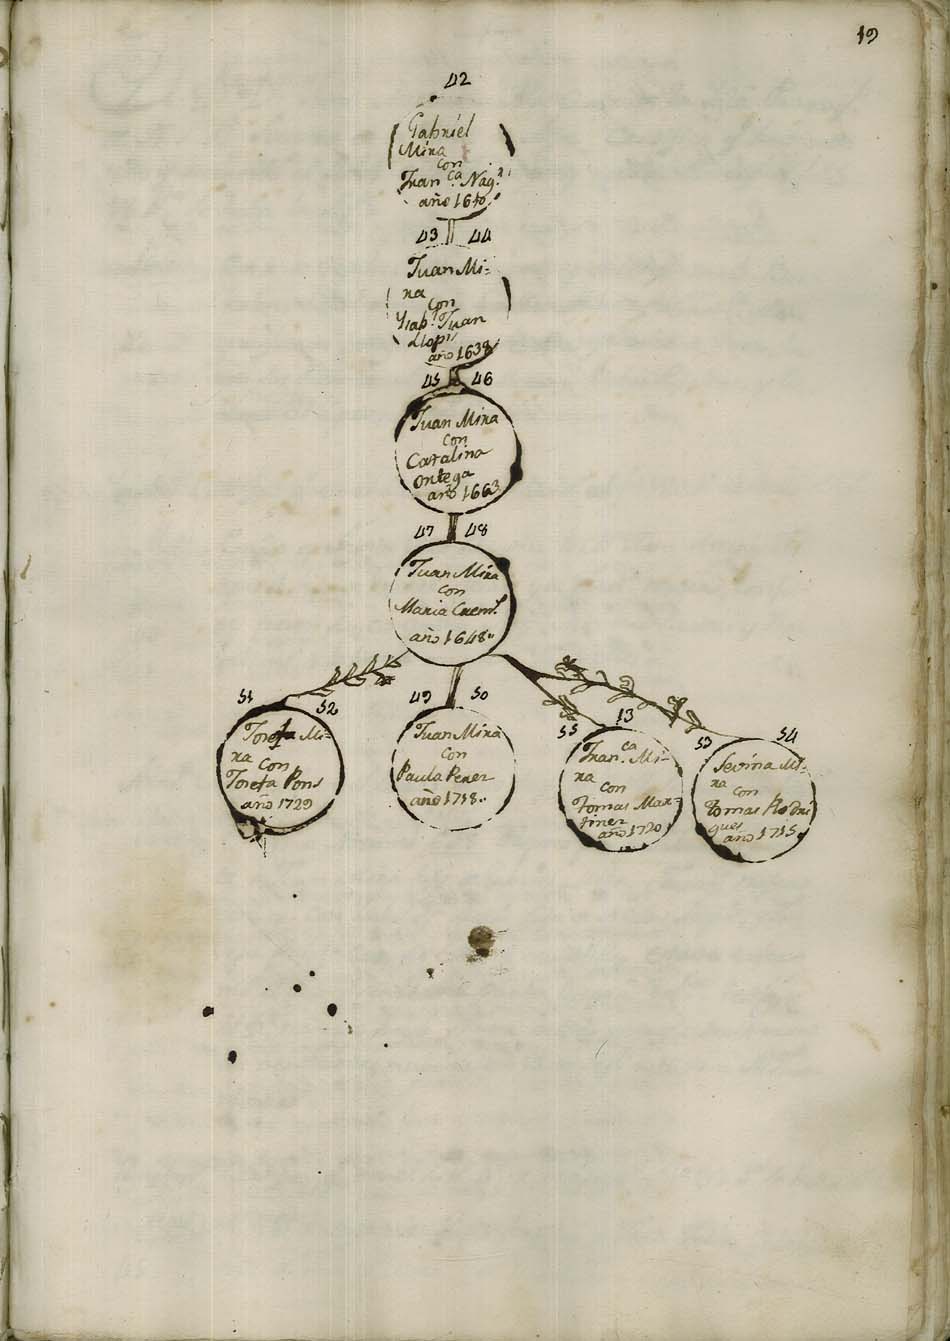 19
42
Gabriel
Mira
con
Fran.ca Nag.
año 1610
43 44
Juan Mi-
ra
con
Ysab.l Juan
Llopis
año 1638
45 46
Juan Mira
con
Catalina
Ortega
año 1663
47 48
Juan Mira
con
Maria
año 1648..
51 52
Josefa Mi-
ra con
Josefa Pons
año 1729
49 50
Juan Mira
con
Paula Perez
año 1718..
55 13
Fran.ca Mi-
ra
con
Tomas Mar-
tinez
año 1720
53 54
Severina Mi-
ra
con
Tomas Rodri
gues
año 1715.